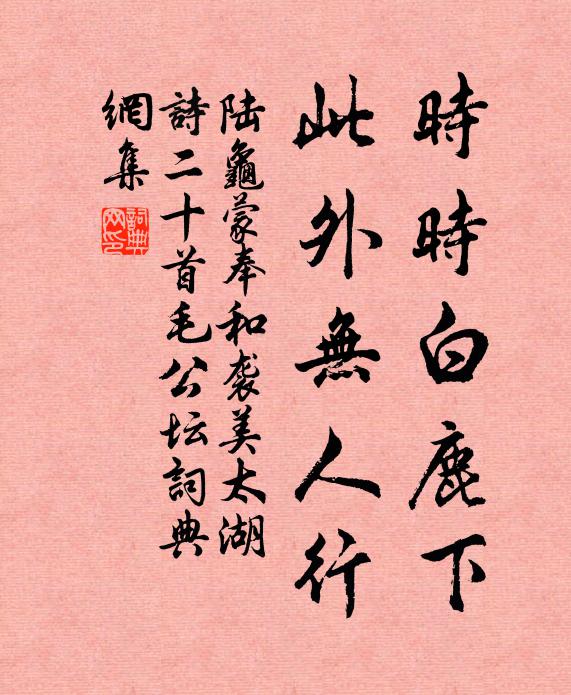 時時白鹿下
此外無人行
陆龜蒙奉和袭美太湖
詩二十首毛公坛詞典
網集
詞典网印